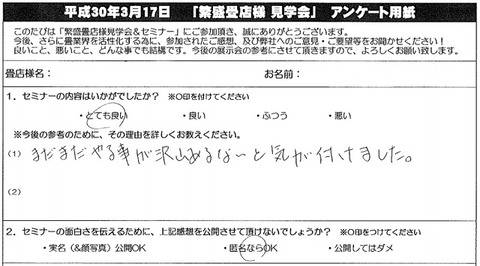 平成30年3月17日 「繁盛畳店様 見学会」 アンケート用紙
このたびは「繁盛畳店様見学会&セミナー」にご参加頂き、誠にありがとうございます。
今後、さらに畳業界を活性化する為に、参加されたご感想、及び弊社へのご意見・ご要望等をお聞かせください！
良いこと、悪いこと、どんな事でも結構です。今後の展示会の参考にさせて頂きますので、よろしくお願い致します。
畳店様名： お名前：
1．セミナーの内容はいかがでしたか？ ※○印を付けてください
・とても良い ・良い ・ふつう ・悪い
※今後の参考のために、その理由を詳しくお教えください。
(1) まだまだやる事が沢山あるなーと気が付けました。
(2)
2．セミナーの面白さを伝えるために、上記感想を公開させて頂けないでしょうか？ ※○印をつけてください
・実名（&顔写真）公開OK ・匿名ならOK ・公開してはダメ